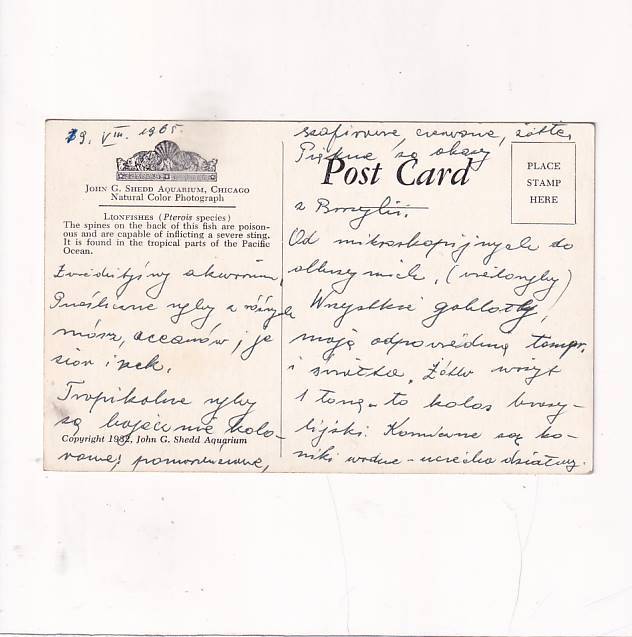 19. VIII. 1965.
JOHN G. SHEDD AQUARIUM, CHICAGO
Natural Color Photograph
LIONFISHES (Pterois species)
The spines on the back of this fish are poison-
ous and are capable of inflicting a severe sting.
It is found in the tropical parts of the Pacific
Ocean.
Zwiedziłyśmy akwarium,
Prześliczne ryby z różnych
mórz, oceanów, je
zior i rzek.
Tropikalne ryby
są bajecznie kolo-
rowe!
Copyright 1932, John G. Shedd Aquarium
szafirowe, czerwone, żółte,
Piękne są okazy
z Brazylii.
Post Card
PLACE
STAMP
HERE
Od mikroskopijnych do
olbrzymich, (wieloryby)
Wszystkie gabloty,
mają odpowiednią temper.
i światło. Żółw waży
1 tonę - to kolos brazy-
lijski. Komiczne są ko-
niki wodne - uciecha dziatwy.